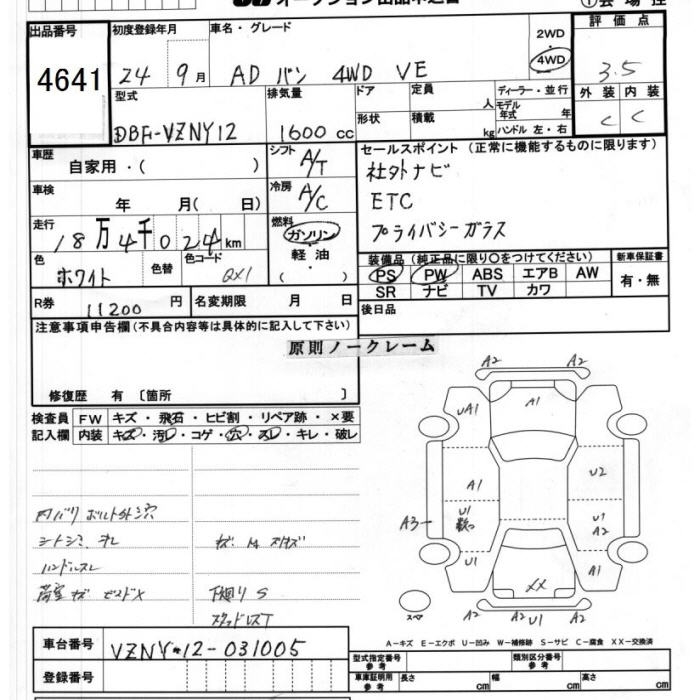 出品番号
4641
初度登録年月
24 9月
車名・グレード
AD バン 4WD VE
2WD
4WD
評価点
3.5
型式
DBF-VZNY12
排気量
1600 cc
ドア
形状
定員 人
積載 kg
ディーラー・並行
モデル年式 年
ハンドル 左・右
外装 内装
C C
車歴
自家用・( )
シフト
A/T
車検
年 月( 日)
冷房
A/C
走行
18万4千024km
燃料
ガソリン
軽油
( )
色
ホワイト
色替
色コード
QX1
R券
11200 円
名変期限 月 日
セールスポイント (正常に機能するものに限ります)
社外ナビ
ETC
プライバシーガラス
装備品 (純正品に限り〇をつけてください)
新車保証書
PS PW ABS エアB AW
SR ナビ TV カワ
有・無
後日品
注意事項申告欄(不具合内容等は具体的に記入して下さい)
原則ノークレーム
修復歴 有 〔箇所 〕
検査員
記入欄
FW キズ・飛石・ヒビ割・リペア跡・×要
内装 キズ・汚レ・コゲ・穴・スレ・キレ・破レ
内バリ ボルト外穴
シートシミ
ハンドルスレ
荷室キズ
下廻りS
A2 A2
UA1 A1
A1 U2
A3 U1 U1 A2
U1 XX A1
A2 A2 U1 A2
スペア
A-キズ E-エクボ U-凹み W-補修跡 S-サビ C-腐食 XX-交換済
車台番号
VZNY12-031005
登録番号
型式指定番号
参考
類別区分番号
参考
車庫証明用
参考
長さ cm
幅 cm
高さ cm